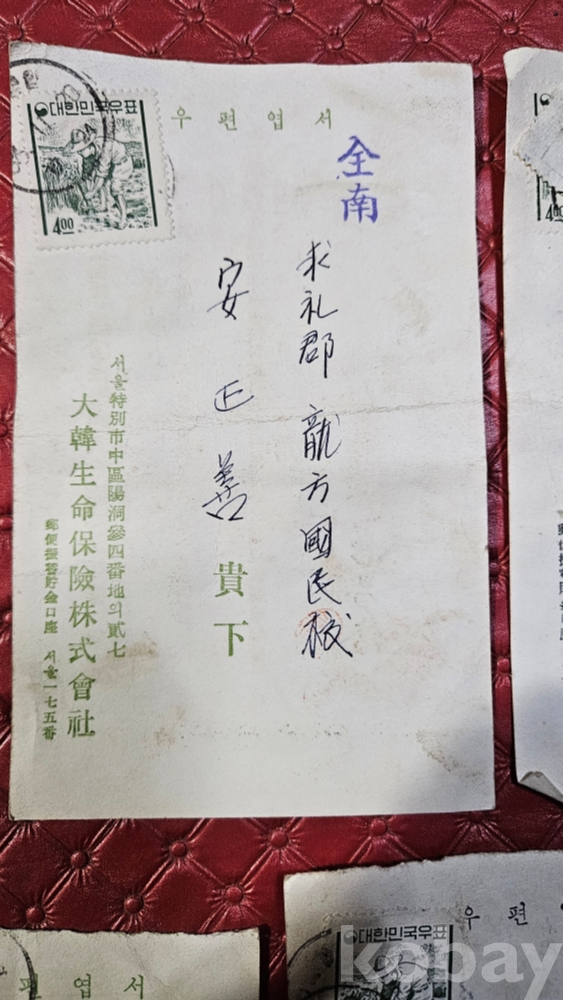 서엽편우
대한민국우표
4.00
全南
求礼郡 龍方國民校
安正善 貴下
서울特別市中區陽洞參四番地의貳七
大韓生命保險株式會社
郵便振替貯金口座 서울一七五番
4.00
우편
대한민국우표
편엽서
kobay